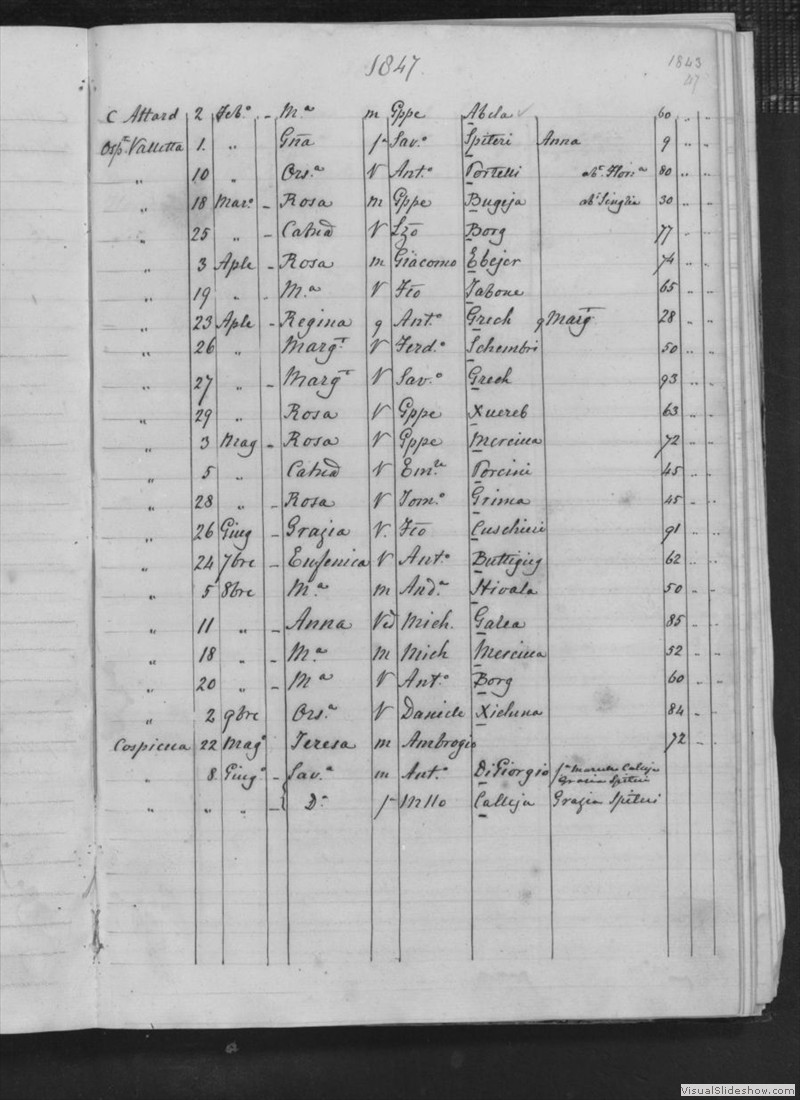 1847
1843
47
C Attard 2 Feb.o - M.a m Gppe Abela 60 " "
Osp. Valletta 1. " Gña f Sav.o Spiteri Anna 9 " "
" 10 " Ors.a V Ant.o Portelli ab. Florn.a 80 " "
" 18 Mar.o - Rosa m Gppe Bugeja ab. Senglea 30 " "
" 25 " - Catna V Lzo Borg 77 " "
" 3 Aple - Rosa m Giacomo Ebejer 74 " "
" 19 " - M.a V Fco Tabone 65 " "
" 23 Aple - Regina g Ant.o Grech g Marg 28 " "
" 26 " Marg. V Ferd.o Schembri 50 " "
" 27 " - Marg. V Sav.o Grech 93 " "
" 29 " Rosa V Gppe Xuereb 63 " "
" 3 Mag - Rosa V Gppe Mercieca 72 " "
" 5 " Catna V Em.le Porcini 45 " "
" 28 " - Rosa V Tom.o Grima 45 - "
" 26 Giug - Grazia V. Fco Cuschieri 91 " "
" 24 7bre - Eufemica V Ant.o Buttigieg 62 " "
" 5 8bre M.a m And.a Stivala 50 - "
" 11 " - Anna Vd Mich. Galea 85 - "
" 18 " - M.a m Mich Mercieca 52 " "
" 20 " - M.a V Ant.o Borg 60 " "
" 2 9bre Ors.a V Daniele Xicluna 84 - "
Cospicua 22 Mag.o Teresa m Ambrogio 72 - "
" 8 Giug.o - Sav.a m Ant.o DiGiorgio Calleja
Grazia Spiteri
" " " - D.a f Mllo Calleja Grazia Spiteri
VisualSlideshow.com